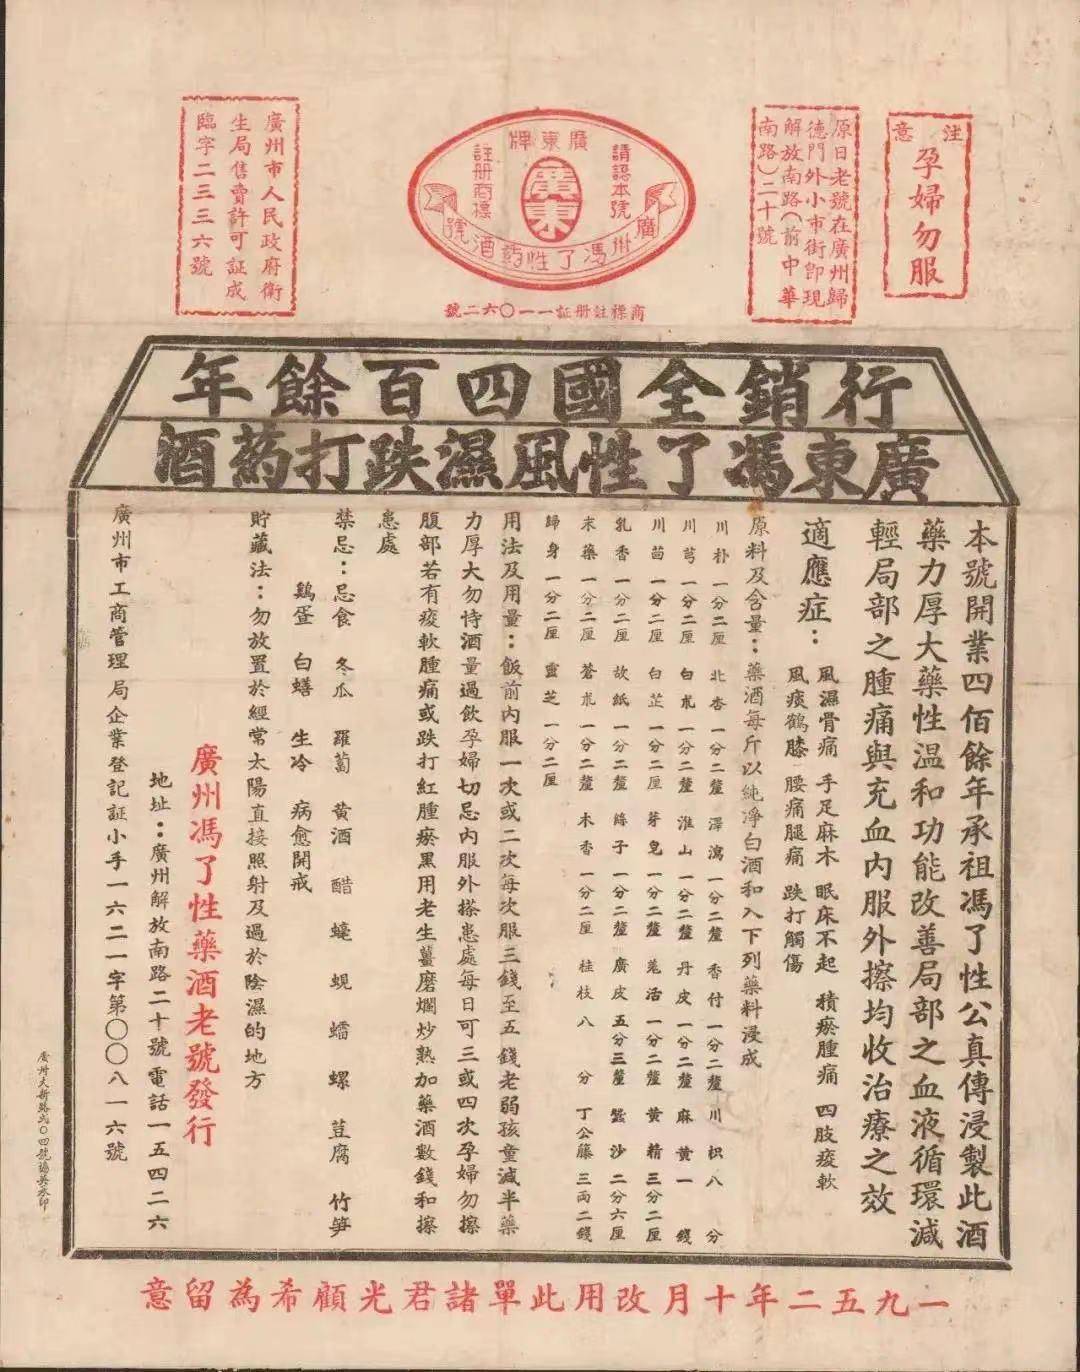 注意
孕婦勿服
原日老號在廣州歸
德門外小市街即現
解放南路(前中華
南路)二十號
廣東牌
請認本號
註册商標
廣東
廣州馮了性药酒號
商標註册証一一〇六二號
廣州市人民政府衛
生局售賣許可証成
臨字二三三六號
行銷全國四百餘年
廣東馮了性風濕跌打葯酒
本號開業四佰餘年承祖馮了性公真傳浸製此酒
藥力厚大藥性温和功能改善局部之血液循環減
輕局部之腫痛與充血内服外擦均收治療之效
適應症：
風濕骨痛 手足麻木 眠床不起 積瘀腫痛 四肢痠軟
風痰鶴膝 腰痛腿痛 跌打觸傷
原料及含量：藥酒每斤以純净白酒和入下列藥料浸成
川朴一分二厘 北杏一分二釐 澤瀉一分二釐 香付一分二釐 川枳八分
川芎一分二厘 白朮一分二釐 淮山一分二釐 丹皮一分二釐 麻黄一錢
川茴一分二厘 白芷一分二厘 芽皂一分二釐 羌活一分二釐 黄精三分二厘
乳香一分二厘 故紙一分二釐 絲子一分二釐 廣皮五分三釐 蠶沙二分六厘
末藥一分二厘 蒼朮一分二釐 木香一分二厘 桂枝八分 丁公藤三両二錢
歸身一分二厘 靈芝一分二厘
用法及用量：飯前内服一次或二次每次服三錢至五錢老弱孩童減半藥
力厚大勿恃酒量過飲孕婦切忌内服外搽患處每日可三或四次孕婦勿擦
腹部若有痠軟腫痛或跌打紅腫瘀黑用老生薑磨爛炒熟加藥酒數錢和擦
患處
禁忌：忌食 冬瓜 羅蔔 黄酒 醋 蟯 蜆 蠕 螺 荳腐 竹笋
鷄蛋 白鱔 生冷 病愈開戒
貯藏法：勿放置於經常太陽直接照射及過於陰濕的地方
廣州馮了性藥酒老號發行
地址：廣州解放南路二十號電話一五四二六
廣州市工商管理局企業登記証小手一六二一字第〇〇八一六號
廣州大新路式〇四號
一九五二年十月改用此單諸君光顧希為留意